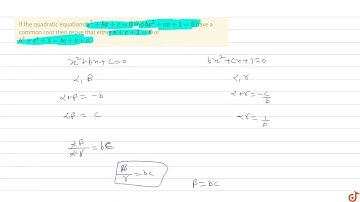 If the quadratic equations x² + bx + c = 0 and bx² + cx + 1 = 0 have a
common root then prove that either b + c + 1 = 0 or
b² + c² + 1 = bc + b + c
x² + bx + c = 0
bx² + cx + 1 = 0
α, β
α, γ
α + β = -b
α + γ = -c/b
αβ = c
αγ = 1/b
αβ/αγ = bc
β/γ = bc
β = bc